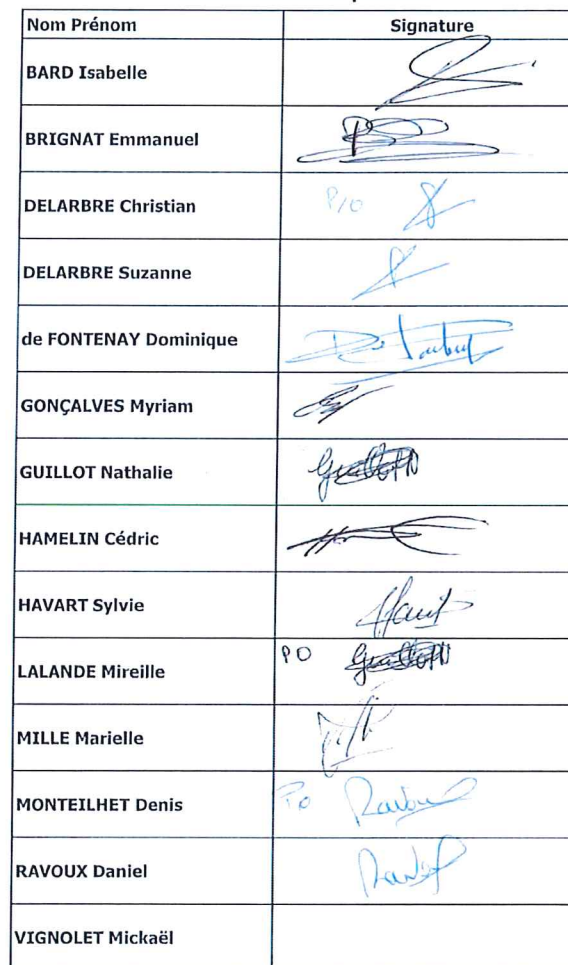 Nom Prénom Signature
BARD Isabelle
BRIGNAT Emmanuel
DELARBRE Christian P/O
DELARBRE Suzanne
de FONTENAY Dominique
GONÇALVES Myriam
GUILLOT Nathalie Guillot N
HAMELIN Cédric
HAVART Sylvie
LALANDE Mireille PO Guillot N
MILLE Marielle
MONTEILHET Denis PO Ravoux
RAVOUX Daniel Ravoux
VIGNOLET Mickaël